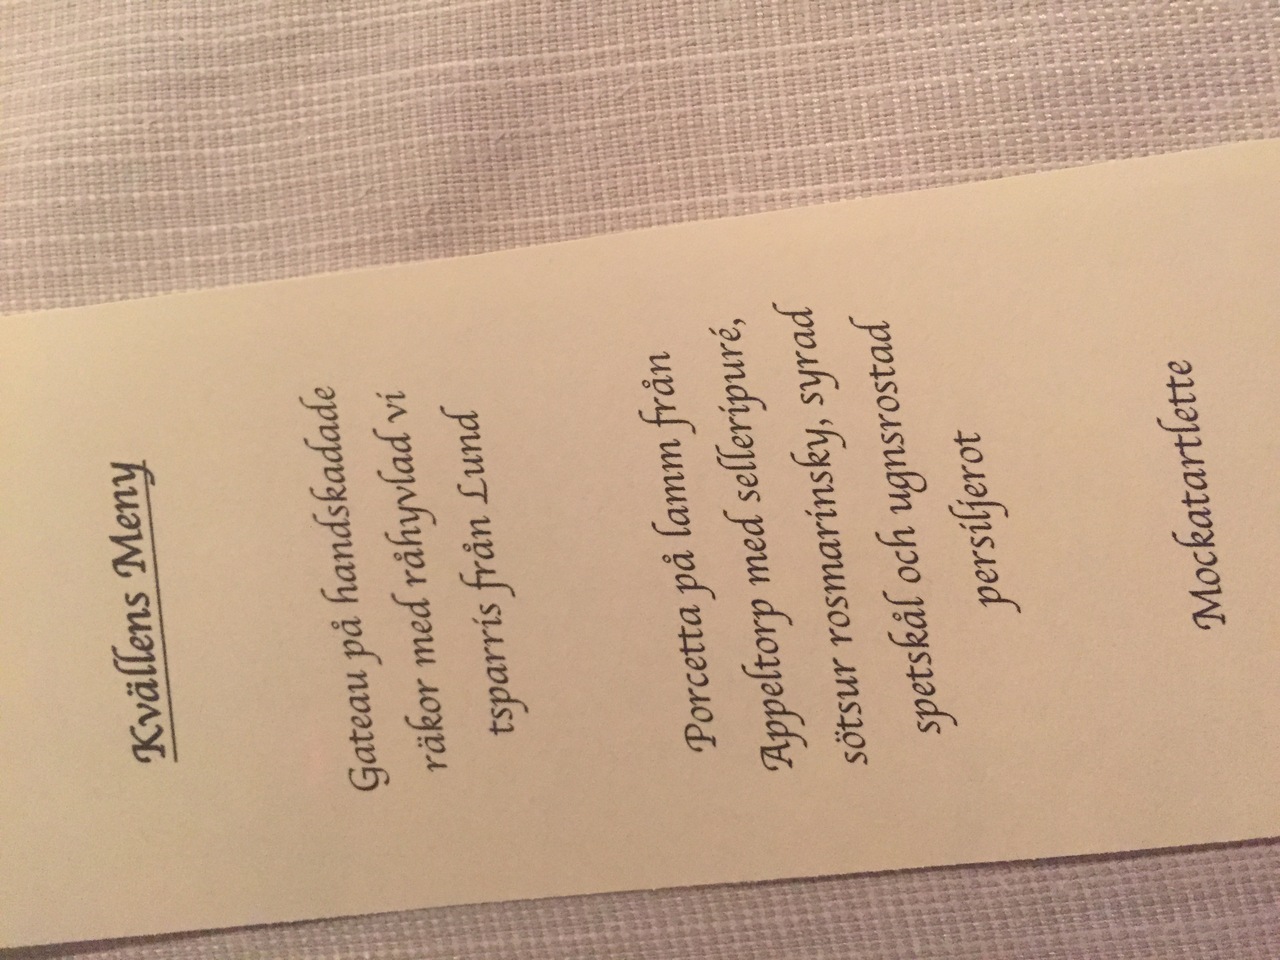 Kvällens Meny
Gateau på handskadade
räkor med råhyvlad vi
tsparris från Lund
Porcetta på lamm från
Appeltorp med selleripuré,
sötsur rosmarinsky, syrad
spetskål och ugnsrostad
persiljerot
Mockatartlette